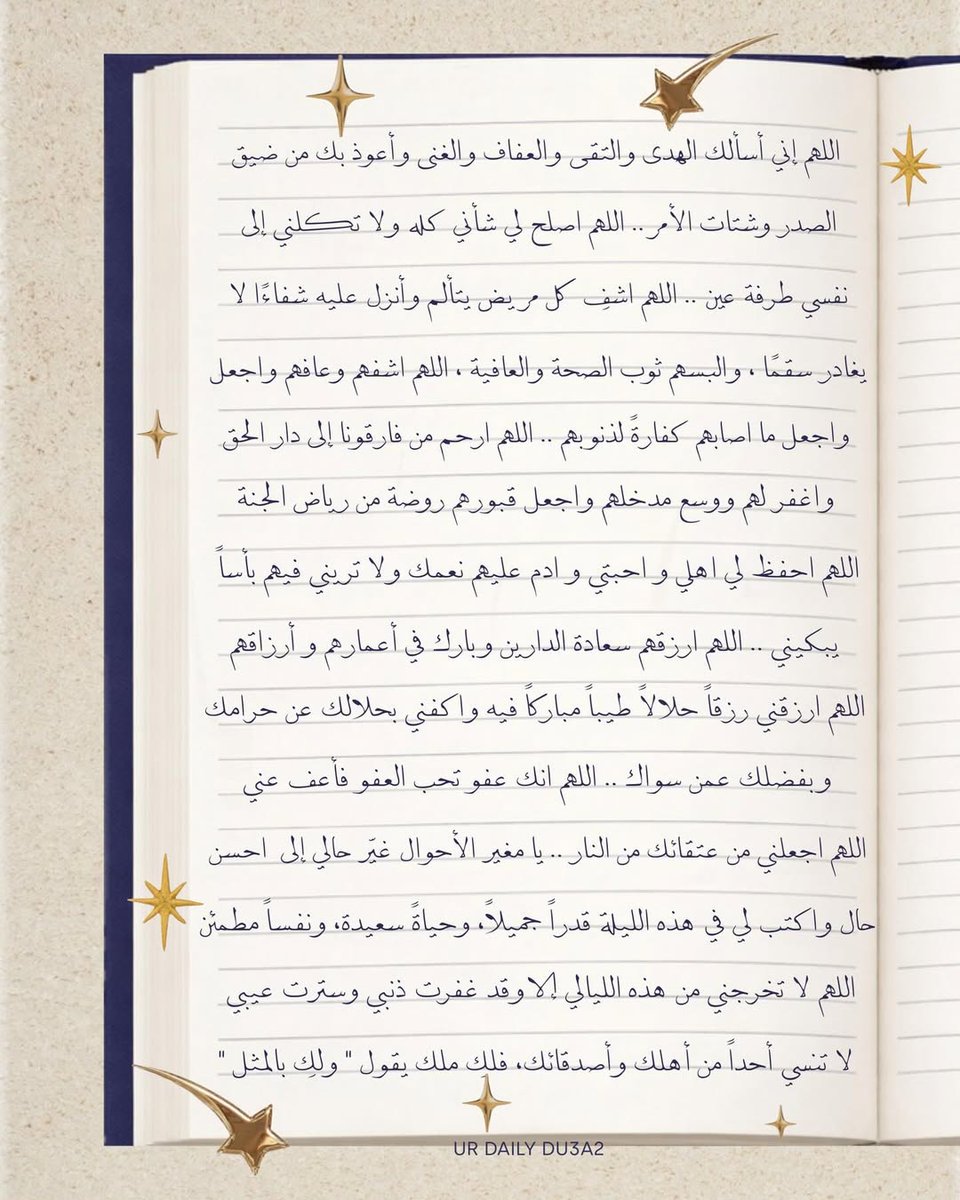 اللهم إني أسألك الهدى والتقى والعفاف والغنى وأعوذ بك من ضيق
الصدر وشتات الأمر .. اللهم اصلح لي شأني كله ولا تكلني إلى
نفسي طرفة عين .. اللهم اشفِ كل مريض يتألم وأنزل عليه شفاءًا لا
يغادر سقمًا ، والبسهم ثوب الصحة والعافية ، اللهم اشفهم وعافهم واجعل
واجعل ما اصابهم كفارةً لذنوبهم .. اللهم ارحم من فارقونا إلى دار الحق
واغفر لهم ووسع مدخلهم واجعل قبورهم روضة من رياض الجنة
اللهم احفظ لي اهلي و احبتي و ادم عليهم نعمك ولا تريني فيهم بأساً
يبكيني .. اللهم ارزقهم سعادة الدارين وبارك في أعمارهم و أرزاقهم
اللهم ارزقني رزقاً حلالاً طيباً مباركاً فيه واكفني بحلالك عن حرامك
وبفضلك عمن سواك .. اللهم انك عفو تحب العفو فأعف عني
اللهم اجعلني من عتقائك من النار .. يا مغير الأحوال غيّر حالي إلى احسن
حال واكتب لي في هذه الليلة قدراً جميلاً، وحياةً سعيدة، ونفساً مطمئن
اللهم لا تخرجني من هذه الليالي إلا وقد غفرت ذنبي وسترت عيبي
لا تنسي أحداً من أهلك وأصدقائك، فلكِ ملك يقول " ولكِ بالمثل "
UR DAILY DU3A2